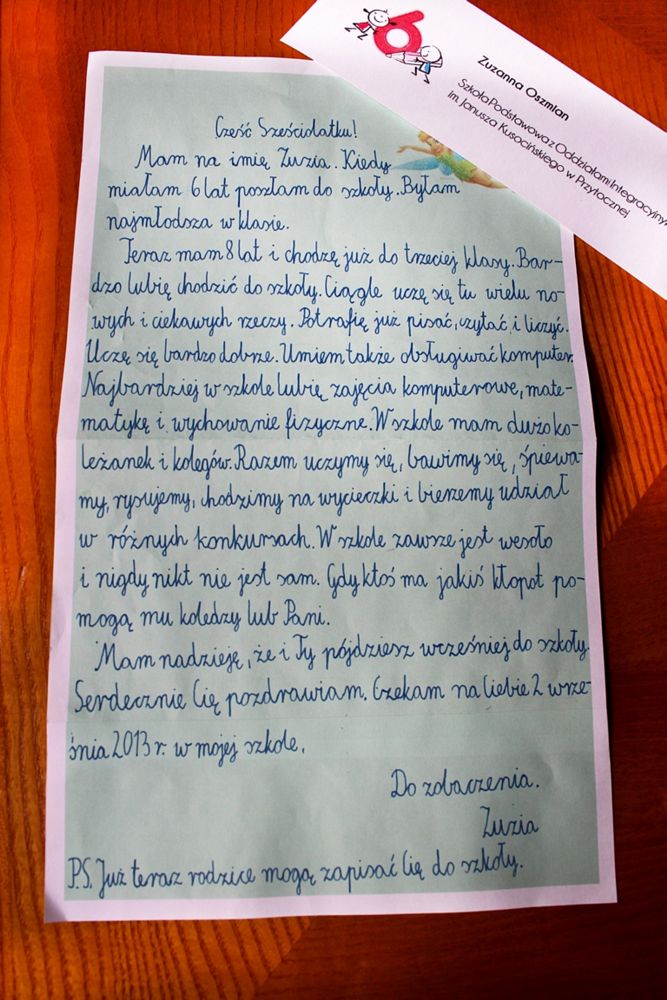 6
Zuzanna Oszmian
Szkoła Podstawowa z Oddziałami Integracyjny
im. Janusza Kusocińskiego w Przytocznej
Cześć Sześciolatku!
Mam na imię Zuzia. Kiedy
miałam 6 lat poszłam do szkoły. Byłam
najmłodsza w klasie.
Teraz mam 8 lat i chodzę już do trzeciej klasy. Bar-
dzo lubię chodzić do szkoły. Ciągle uczę się tu wielu no-
wych i ciekawych rzeczy. Potrafię już pisać, czytać i liczyć.
Uczę się bardzo dobrze. Umiem także obsługiwać komputer.
Najbardziej w szkole lubię zajęcia komputerowe, mate-
matykę i wychowanie fizyczne. W szkole mam dużo ko-
leżanek i kolegów. Razem uczymy się, bawimy się, śpiewa-
my, rysujemy, chodzimy na wycieczki i bierzemy udział
w różnych konkursach. W szkole zawsze jest wesoło
i nigdy nikt nie jest sam. Gdy ktoś ma jakiś kłopot po-
mogą mu koledzy lub Pani.
Mam nadzieję, że i Ty pójdziesz wcześniej do szkoły.
Serdecznie Cię pozdrawiam. Czekam na Ciebie 2 wrze-
śnia 2013 r. w mojej szkole.
Do zobaczenia.
Zuzia
P.S. Już teraz rodzice mogą zapisać Cię do szkoły.